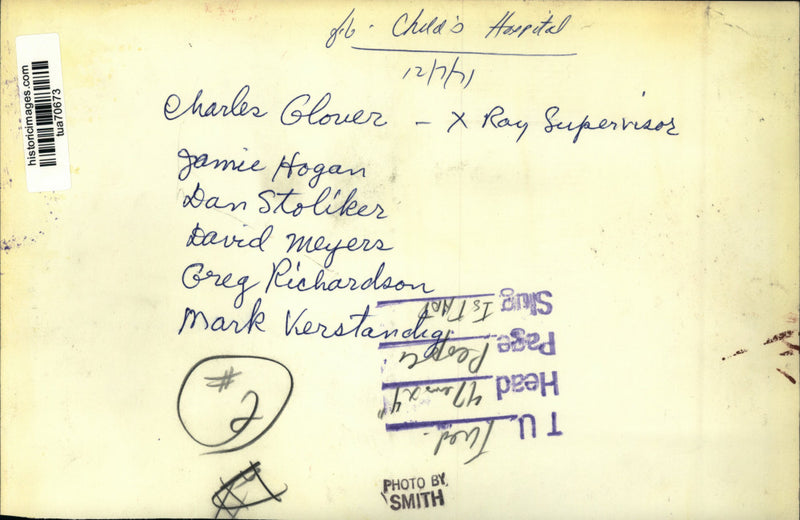 Child's Hospital
12/7/71
Charles Glover - X Ray Supervisor
Jamie Hogan
Dan Stoliker
David Meyers
Greg Richardson
Mark Verstandig
historicimages.com
tua70673
T U. Wed.
Head
Page People
Slug 1st ADD
# 2
PHOTO BY
SMITH